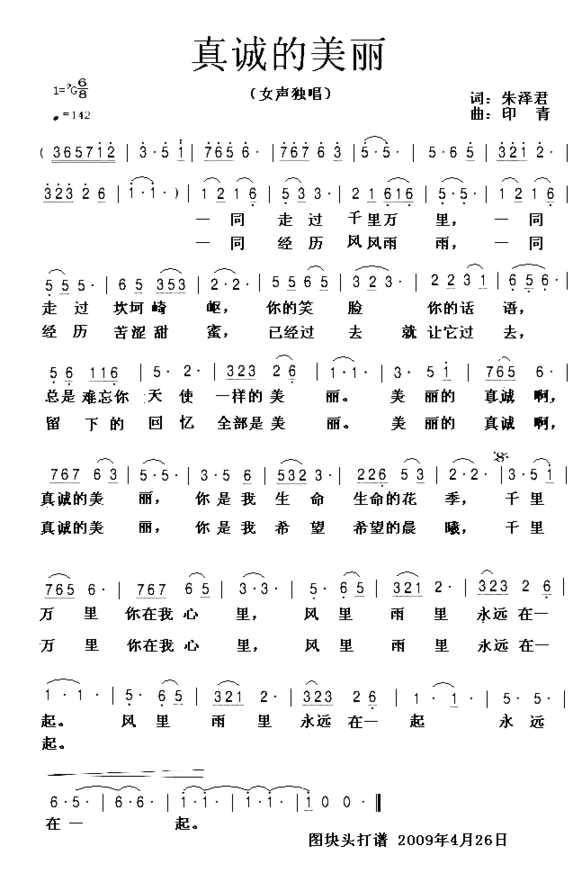 真诚的美丽
（女声独唱）
1=♭G 6/8
♩.=142
词：朱泽君
曲：印 青
( 365712 | 3·5 1 | 765 6· | 767 63 | 5·5· | 5·65 | 321 2· |
323 26 | 1·1· ) | 12 16 | 53 3· | 21 616 | 5·5· | 12 16 |
一同 走过 千里万 里， 一同
一同 经历 风风雨 雨， 一同
55 5· | 65 353 | 2·2· | 55 65 | 323· | 22 31 | 656· |
走过 坎坷崎 岖， 你的笑 脸 你的话 语，
经历 苦涩甜 蜜， 已经过 去 就让它过去，
56 116 | 5·2· | 323 26 | 1·1· | 3·51 | 765 6· |
总是难忘你 天使 一样的美 丽。 美丽的 真诚啊，
留下的 回忆 全部是美 丽。 美丽的 真诚啊，
767 63 | 5·5· | 3·56 | 532 3· | 226 53 | 2·2· | 3·51 |
真诚的美 丽， 你是我 生命 生命的花 季， 千里
真诚的美 丽， 你是我 希望 希望的晨 曦， 千里
765 6· | 767 65 | 3·3· | 5·65 | 321 2· | 323 26 |
万里 你在我心 里， 风里 雨里 永远在一
万里 你在我心 里， 风里 雨里 永远在一
1·1· | 5·65 | 321 2· | 323 26 | 1·1· | 5·5· |
起。 风里 雨里 永远在一 起 永远
起。
6·5· | 6·6· | 1·1· | 1·1· | 100· ‖
在一 起。
图块头打谱 2009年4月26日